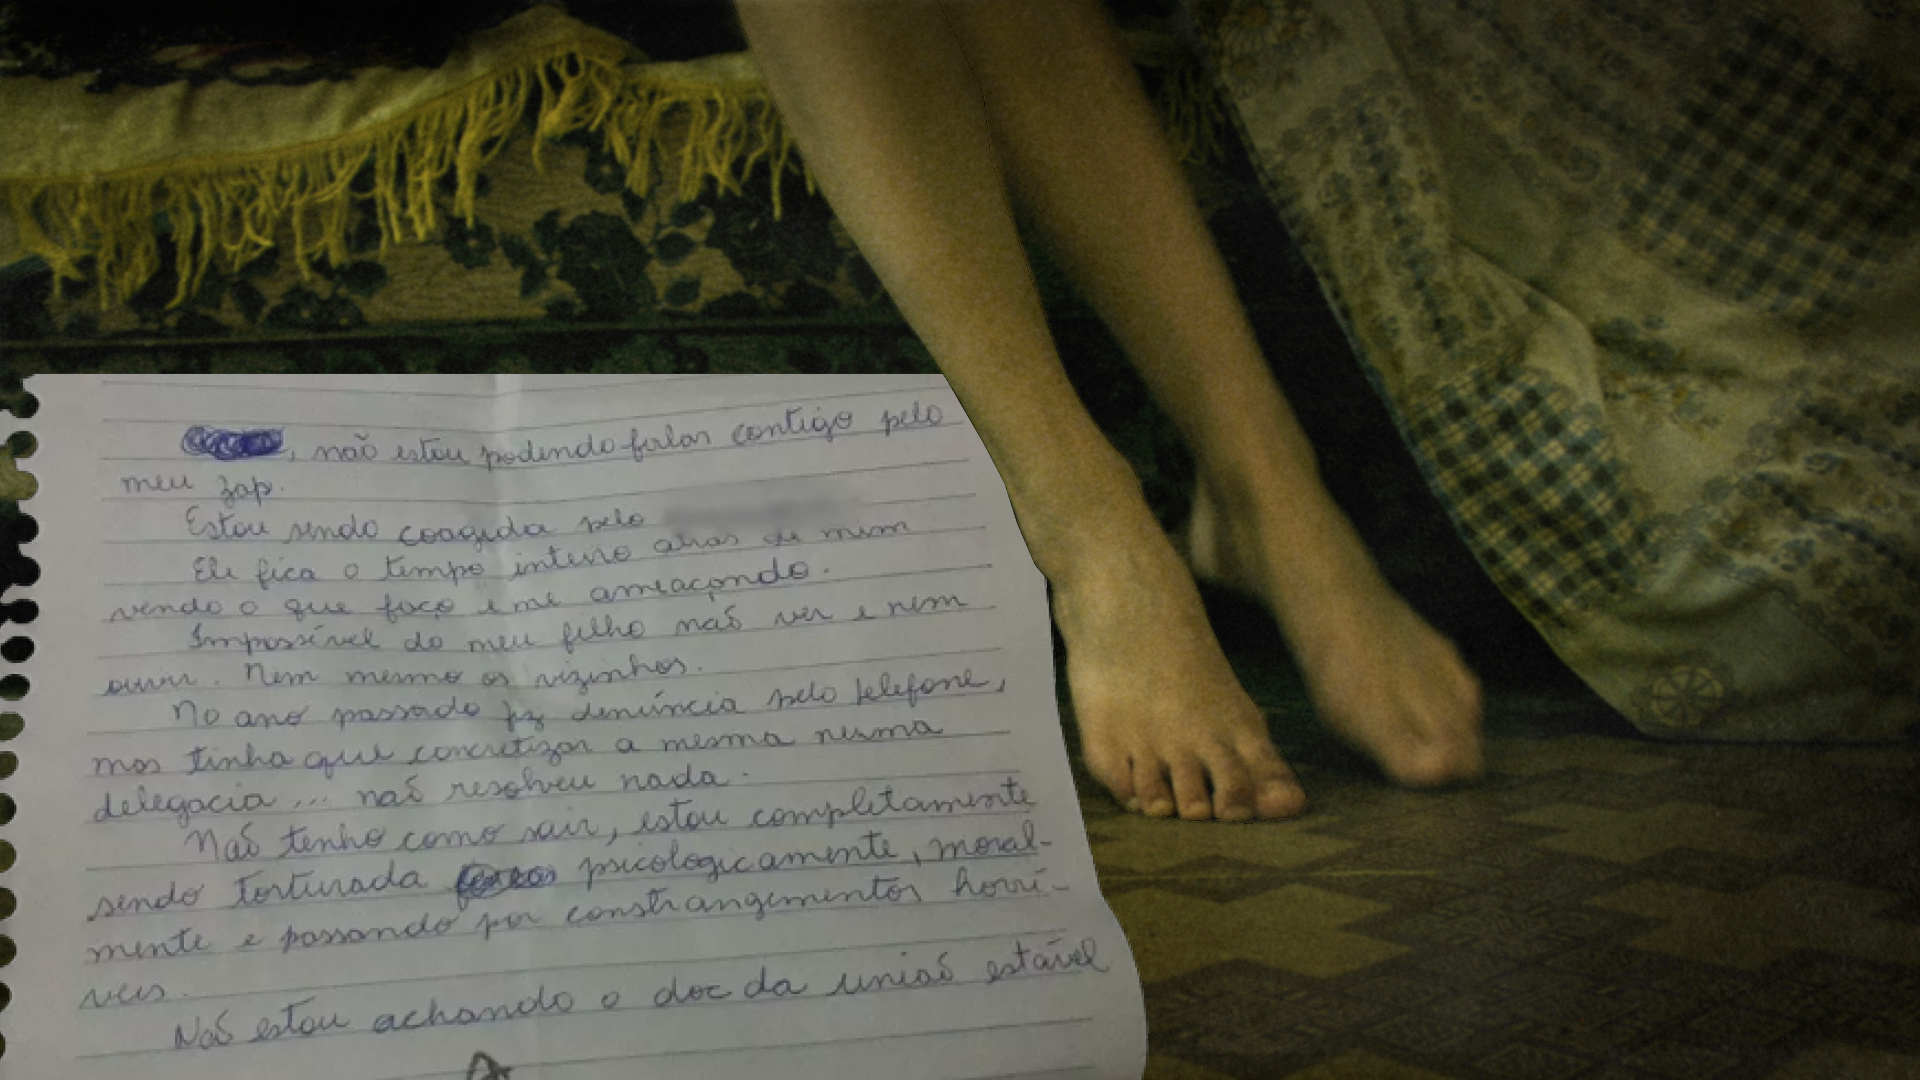 , não estou podendo falar contigo pelo
meu zap.
Estou sendo coagida pelo
Ele fica o tempo inteiro atras de mim
vendo o que faço e me ameaçando.
Impossível do meu filho não ver e nem
ouvir. Nem mesmo os vizinhos.
No ano passado fiz denúncia pelo telefone,
mas tinha que concretizar a mesma numa
delegacia... não resolveu nada.
Não tenho como sair, estou completamente
sendo torturada psicologicamente, moral-
mente e passando por constrangimentos horrí-
veis.
Não estou achando o doc da união estável